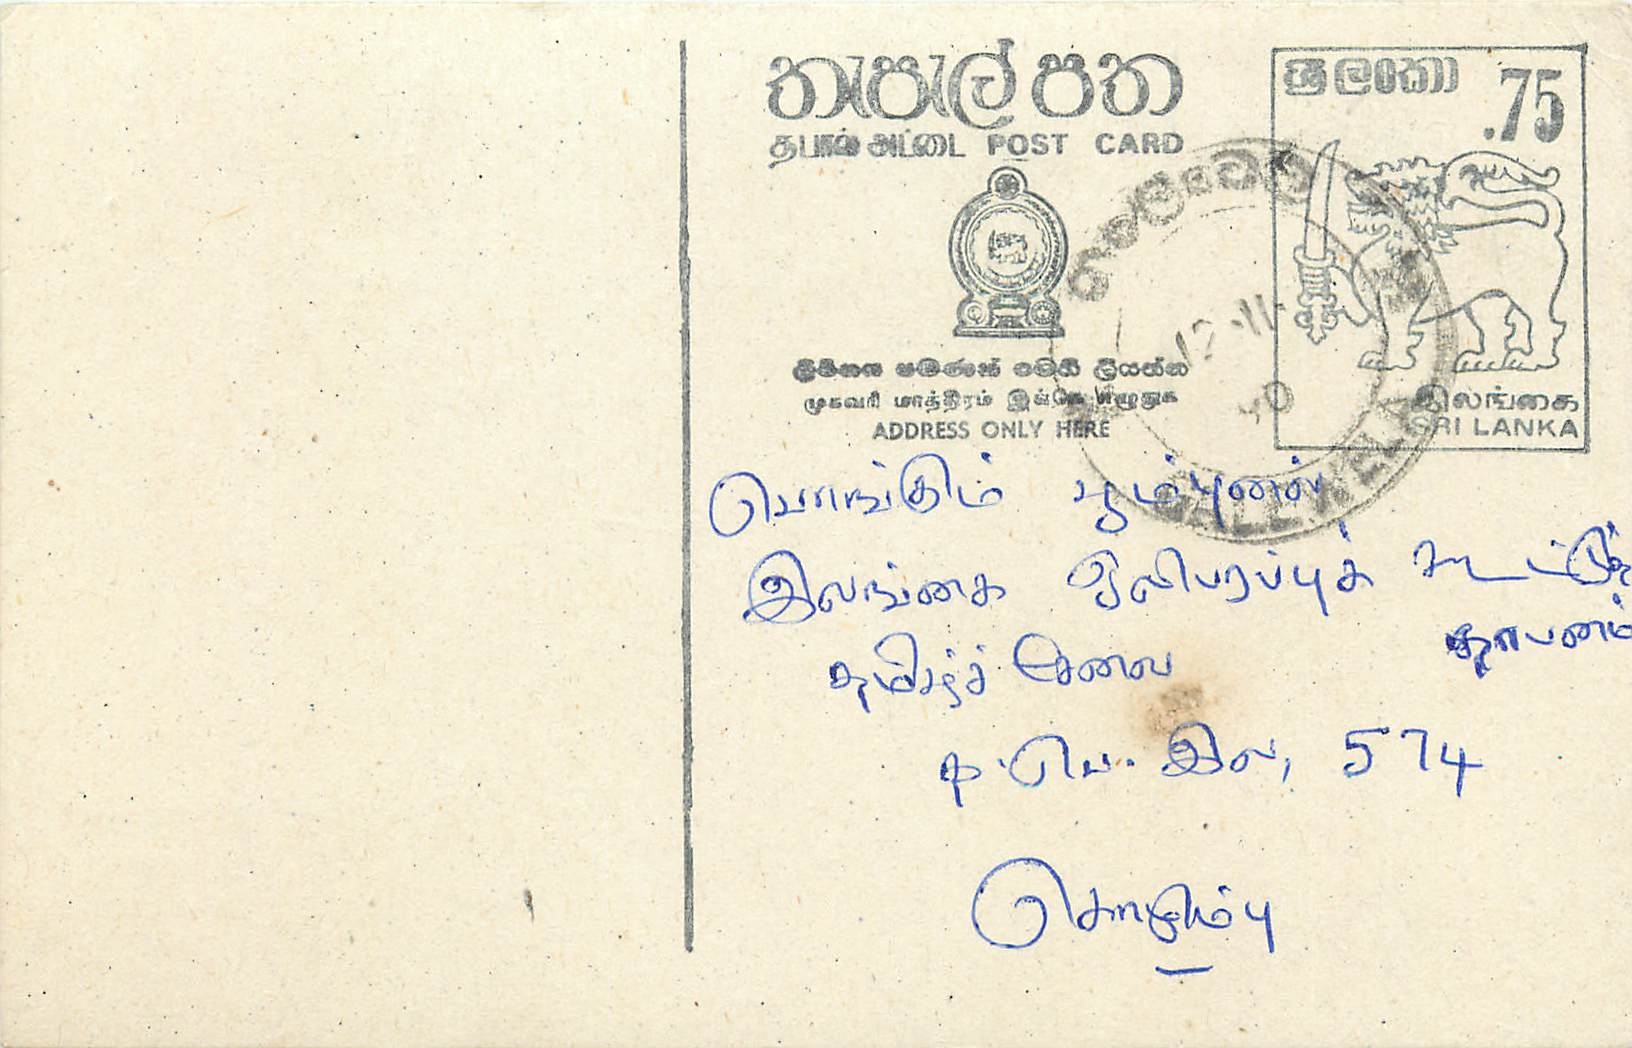 තැපැල් පත
தபால் அட்டை POST CARD
ශ්‍රී ලංකා .75
ලිපිනය පමණක් මෙහි ලියන්න
முகவரி மாத்திரம் இங்கே எழுதுக
ADDRESS ONLY HERE
இலங்கை
SRI LANKA
பொங்கும் பூம்புனல்
இலங்கை ஒலிபரப்புக் கூட்டுத்
தாபனம்
தமிழ்ச் சேவை
த. பெ. இல, 574
கொழும்பு